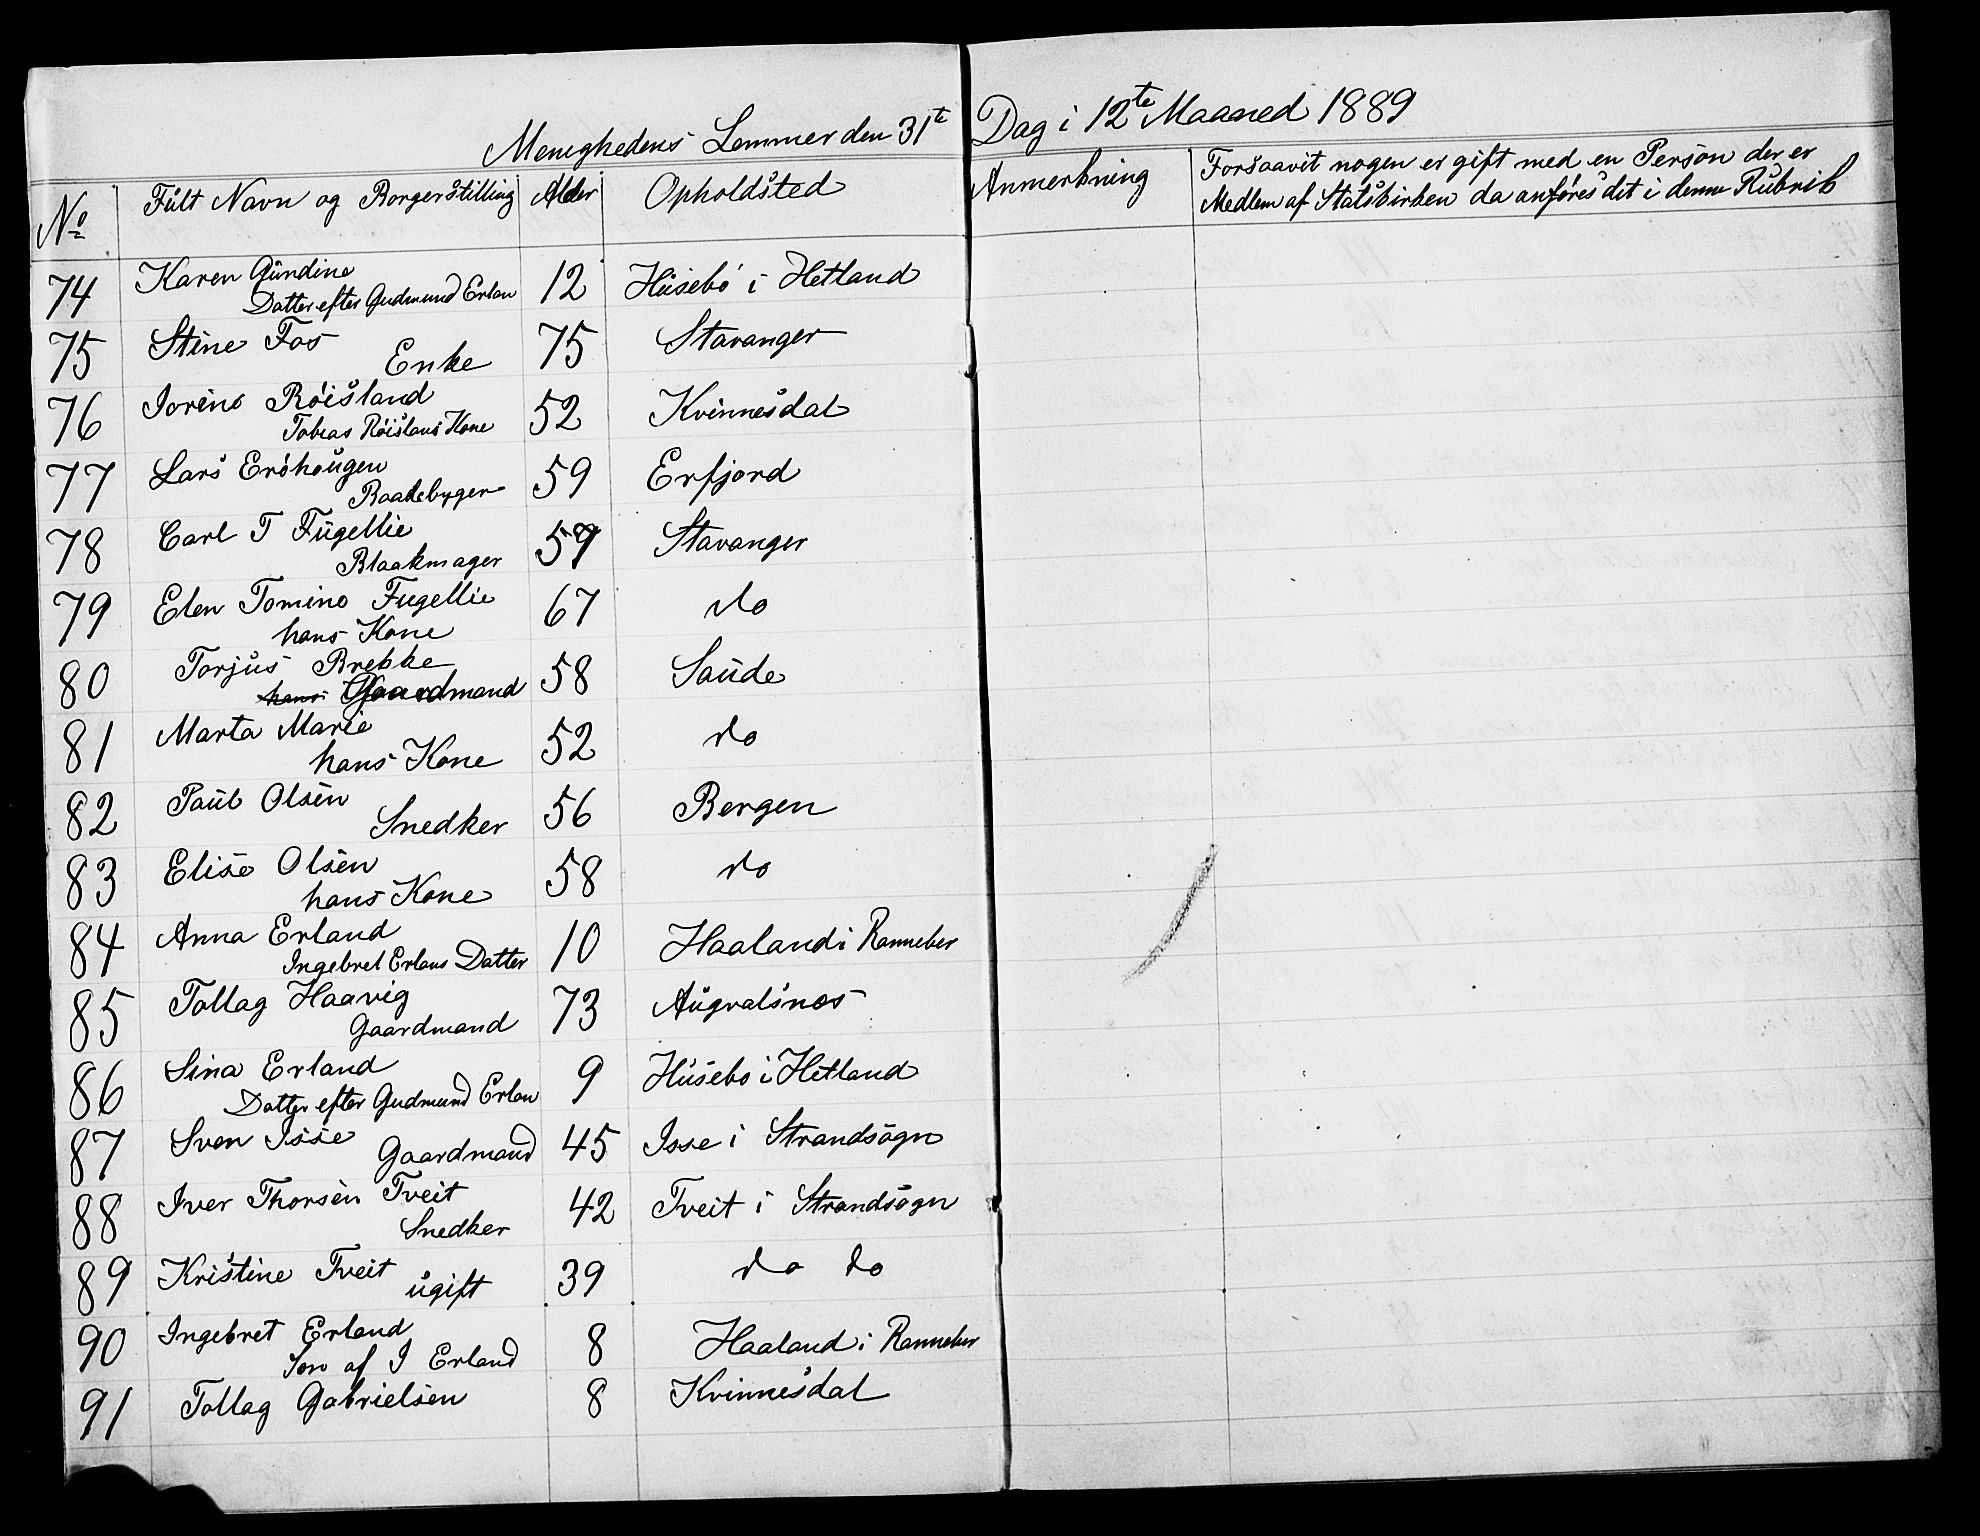 Menighedens Lemmer den 31te Dag i 12te Maaned 1889
No Fült Navn og Borgerstilling Alder Opholdsted Anmerkning Forsaavit nogen er gift med en Person der er
Medlem af Statskirken da anføres det i denne Rubrik
74 Karen Gundine 12 Husebø i Hetland
Datter efter Gudmund Erlan
75 Stine Fos 75 Stavanger
Enke
76 Iorine Røisland 52 Kvinnesdal
Tobias Røislans Kone
77 Lars Erøhougen 59 Erfjord
Baadebyger
78 Carl T Fugellie Stavanger
Blaakmager
79 Elen Tomine Fugellie 67 do
hans Kone
80 Torjus Brekke 58 Saude
hans Gaardmand
81 Marta Marie 52 do
hans Kone
82 Paul Olsen 56 Bergen
Snedker
83 Elise Olsen 58 do
hans Kone
84 Anna Erland 10 Haaland i Ranneber
Ingebret Erlans Datter
85 Tollag Haavig 73 Augvalsnes
Gaardmand
86 Sina Erland 9 Husebo i Hetland
Datter efter Gudmund Erlan
87 Sven Isse 45 Isse i Strandsogn
Gaardmand
88 Iver Thorsen Tveit 42 Tveit i Strandsogn
Snedker
89 Kristine Tveit 39 do do
ugift
90 Ingebret Erland 8 Haaland i Ranneber
Søn af I Erland
91 Tollag Gabrielsen 8 Kvinnesdal